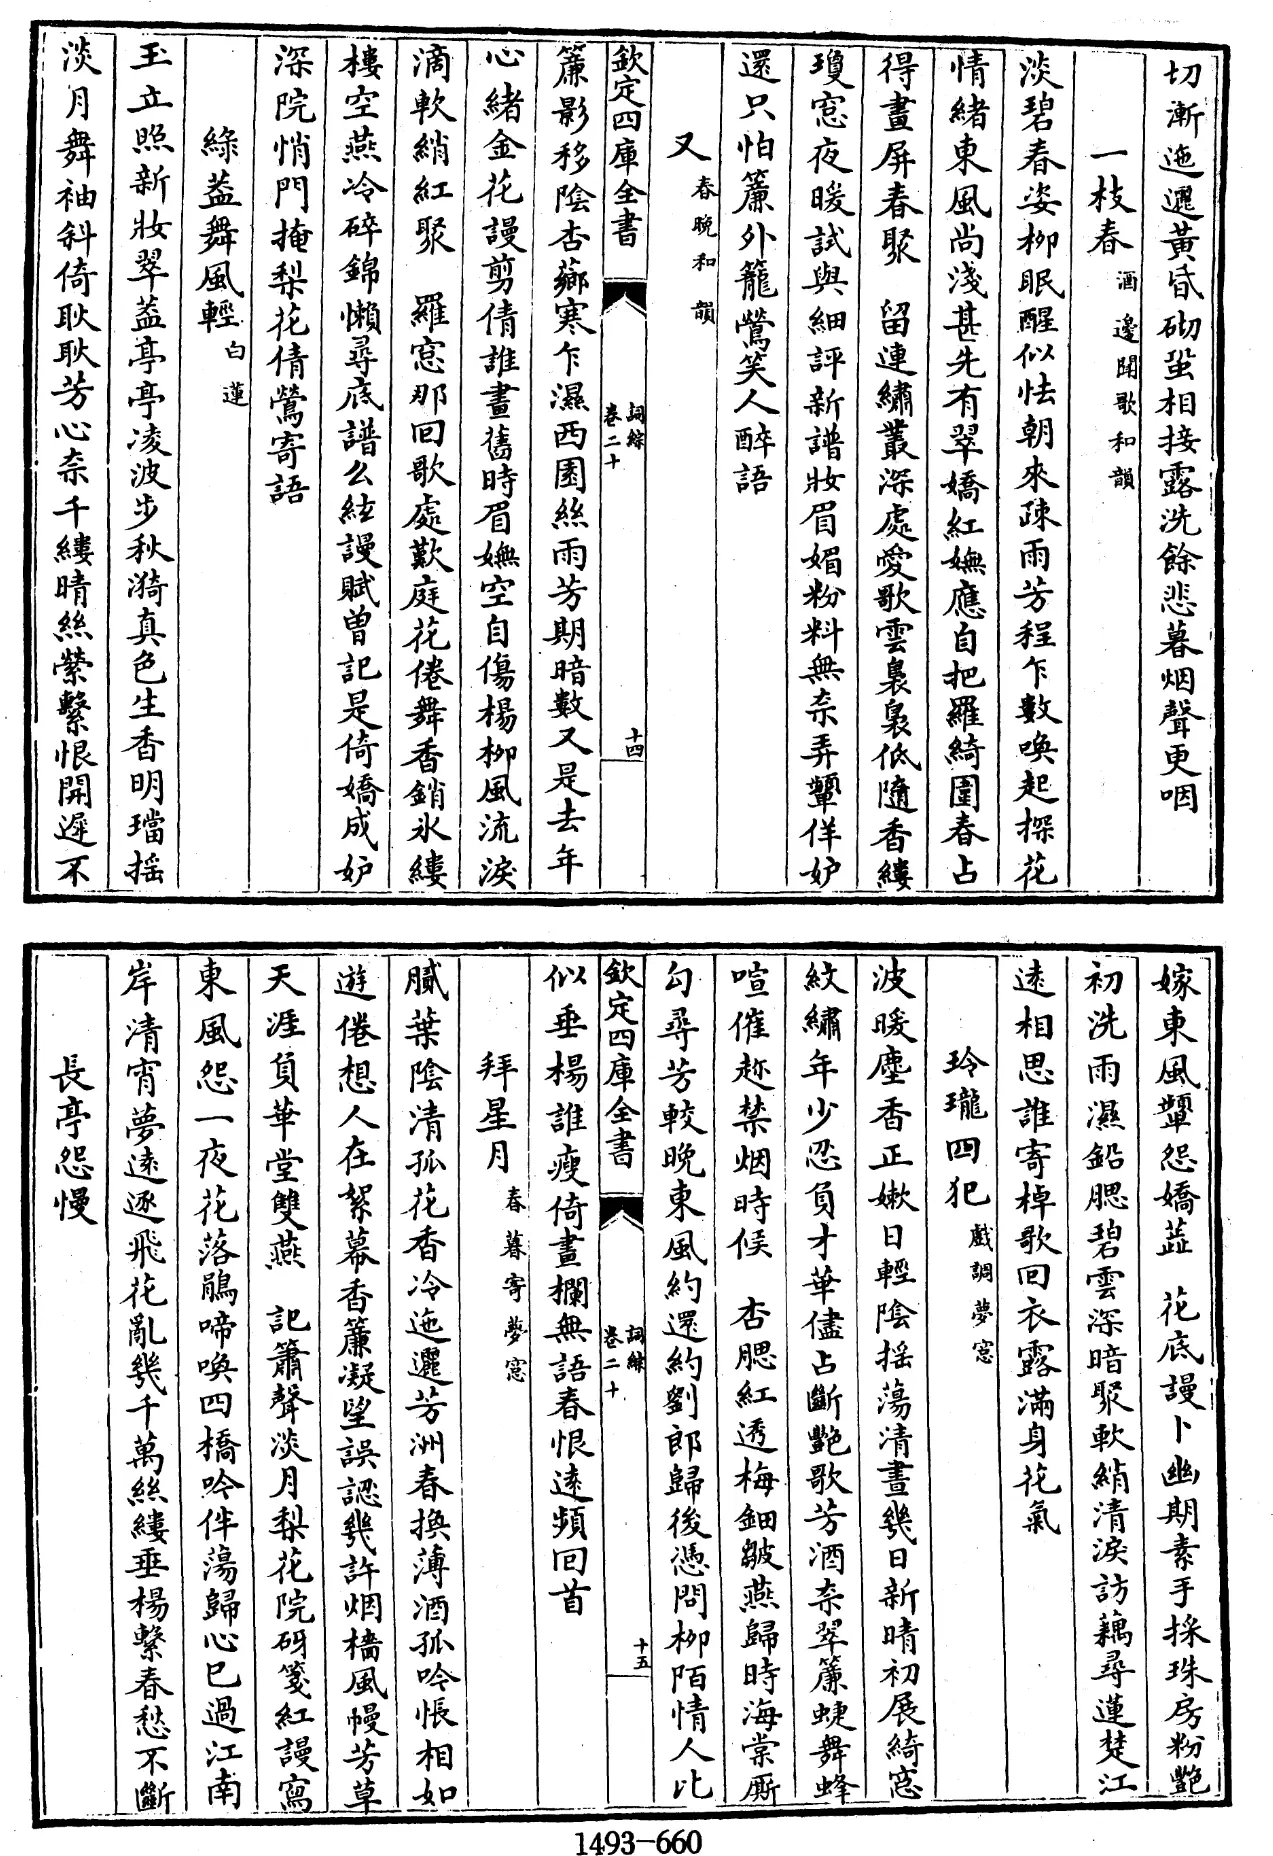 切漸迤邐黃昏砌蛩相接露洗餘悲暮烟聲更咽
一枝春 酒邊聞歌和韻
淡碧春姿柳眠醒似怯朝來疎雨芳程乍數喚起探花
情緒東風尚淺甚先有翠嬌紅嫵應自把羅綺圍春占
得畫屏春聚 留連繡叢深處愛歌雲裊裊低隨香縷
瓊窓夜暖試與細評新譜妝眉媚粉料無奈弄顰佯妒
還只怕簾外籠鶯笑人醉語
又 春晚和韻
欽定四庫全書 詞綜 卷二十 十四
簾影移陰杏薌寒乍濕西園絲雨芳期暗數又是去年
心緒金花謾剪倩誰畫舊時眉嫵空自傷楊柳風流淚
滴軟綃紅聚 羅窓那回歌處歎庭花倦舞香銷氷縷
樓空燕冷碎錦懶尋底譜么絃謾賦曾記是倚嬌成妒
深院悄門掩梨花倩鶯寄語
綠蓋舞風輕 白蓮
玉立照新妝翠蓋亭亭凌波步秋漪真色生香明璫摇
淡月舞袖斜倚耿耿芳心奈千縷晴絲縈繫恨開遲不
嫁東風顰怨嬌蕋 花底謾卜幽期素手採珠房粉艷
初洗雨濕鉛腮碧雲深暗聚軟綃清淚訪藕尋蓮楚江
逺相思誰寄棹歌回衣露滿身花氣
玲瓏四犯 戲調夢窓
波暖塵香正嫩日輕陰摇蕩清晝幾日新晴初展綺窓
紋繡年少忍負才華儘占斷艷歌芳酒奈翠簾蜨舞蜂
喧催趂禁烟時候 杏腮紅透梅鈿皺燕歸時海棠厮
勾尋芳較晚東風約還約劉郎歸後憑問柳陌情人比
欽定四庫全書 詞綜 卷二十 十五
似垂楊誰瘦倚畫欄無語春恨逺頻回首
拜星月 春暮寄夢窓
膩葉陰清孤花香冷迤邐芳洲春換薄酒孤吟悵相如
遊倦想人在絮幕香簾凝望誤認幾許烟檣風幔芳草
天涯負華堂雙燕 記簫聲淡月梨花院砑箋紅謾寫
東風怨一夜花落鵑啼喚四橋吟伴蕩歸心已過江南
岸清宵夢逺逐飛花亂幾千萬絲縷垂楊繫春愁不斷
長亭怨慢
1493-660